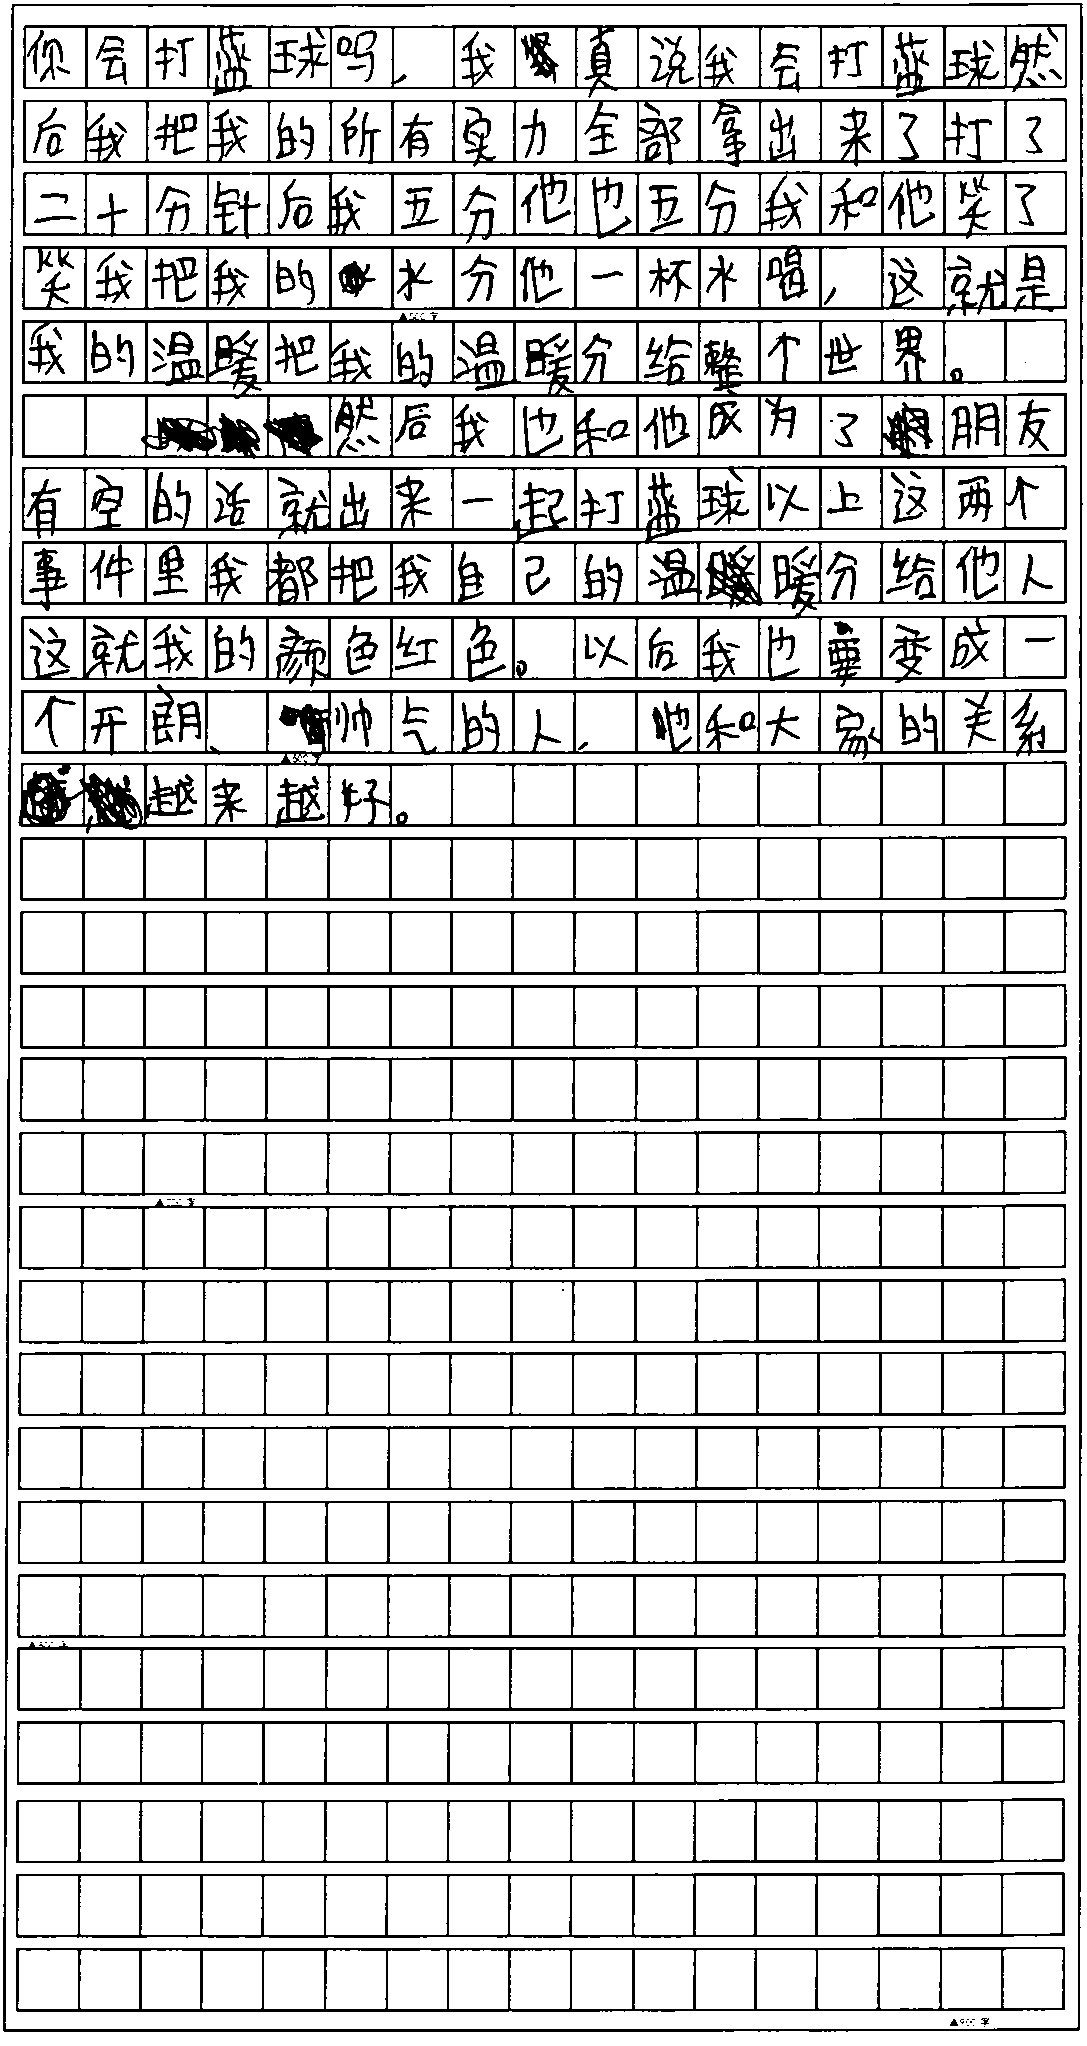 你会打蓝球吗，我真说我会打蓝球然
后我把我的所有实力全部拿出来了打了
二十分针后我五分他也五分我和他笑了
笑我把我的水分他一杯水喝，这就是
我的温暖把我的温暖分给整个世界。
然后我也和他成为了朋友
有空的话就出来一起打蓝球以上这两个
事件里我都把我自己的温暖分给他人
这就我的颜色红色。以后我也要变成一
个开朗、帅气的人，地和大家的关系
越来越好。